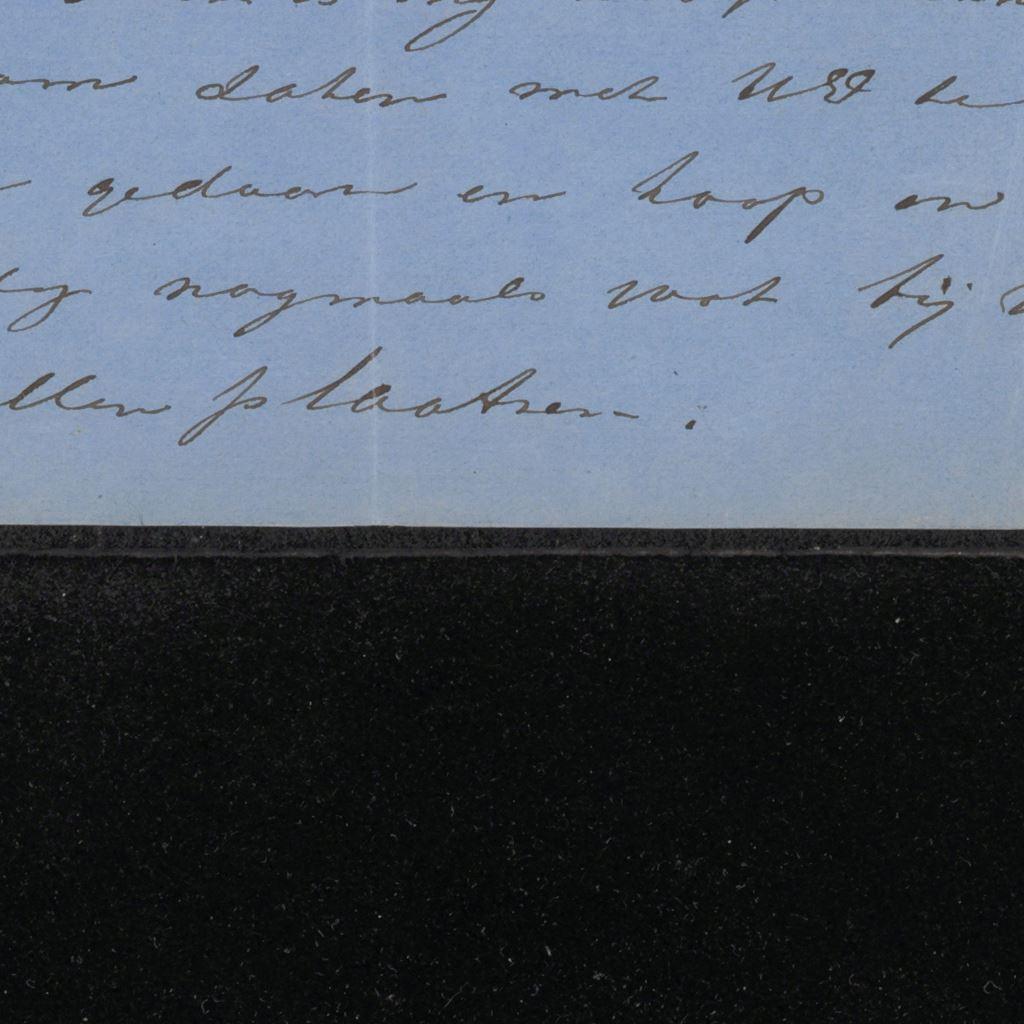 zaken met UEd te
gedaan en hoop en
nogmaals wat bij
llen plaatsen.